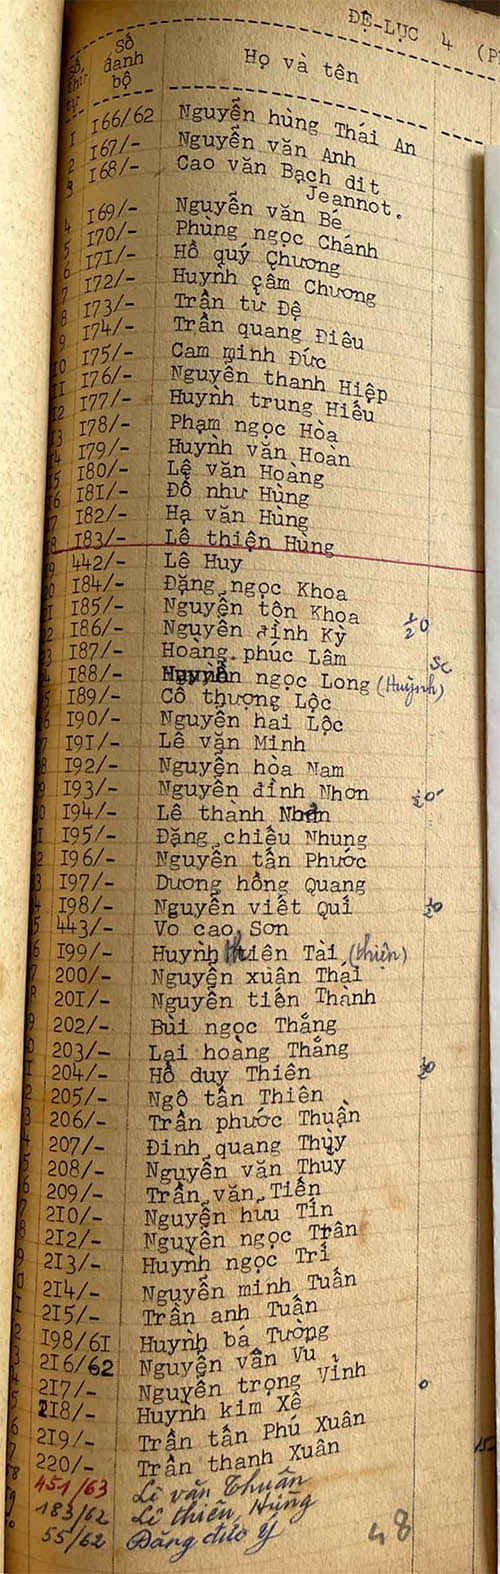 ĐỆ-LỤC 4 (P
Số thứ tự Số danh bộ Họ và tên
1 166/62 Nguyễn hùng Thái An
2 167/- Nguyễn văn Anh
3 168/- Cao văn Bạch dit
Jeannot.
4 169/- Nguyễn văn Bé
5 170/- Phùng ngọc Chánh
6 171/- Hồ quý Chương
7 172/- Huỳnh cẩm Chương
8 173/- Trần tư Đệ
9 174/- Trần quang Điêu
10 175/- Cam minh Đức
11 176/- Nguyễn thanh Hiệp
12 177/- Huỳnh trung Hiếu
13 178/- Phạm ngọc Hòa
14 179/- Huỳnh văn Hoàn
15 180/- Lê văn Hoàng
16 181/- Đỗ như Hùng
17 182/- Hạ văn Hùng
18 183/- Lê thiện Hùng
19 442/- Lê Huy
20 184/- Đặng ngọc Khoa
21 185/- Nguyễn tôn Khoa
22 186/- Nguyễn đình Kỳ
23 187/- Hoàng phúc Lâm
188/- ngọc Long (Huỳnh) SC
5 189/- Cổ thượng Lộc
190/- Nguyễn hai Lộc
7 191/- Lê văn Minh
8 192/- Nguyễn hòa Nam
9 193/- Nguyễn đình Nhơn
0 194/- Lê thành
1 195/- Đặng chiêu Nhung
2 196/- Nguyễn tấn Phước
3 197/- Dương hồng Quang
4 198/- Nguyễn viết Quí
5 443/- Vo cao Sơn
6 199/- Huỳnh thiên Tài (thiện)
7 200/- Nguyễn xuân Thái
8 201/- Nguyễn tiến Thành
9 202/- Bùi ngọc Thắng
0 203/- Lại hoàng Thắng
1 204/- Hồ duy Thiên
2 205/- Ngô tấn Thiên
3 206/- Trần phước Thuận
4 207/- Đinh quang Thùy
5 208/- Nguyễn văn Thuy
6 209/- Trần văn Tiến
7 210/- Nguyễn hưu Tín
8 212/- Nguyễn ngọc Trân
9 213/- Huỳnh ngọc Trí
0 214/- Nguyễn minh Tuấn
1 215/- Trần anh Tuấn
2 198/61 Huỳnh bá Tường
3 216/62 Nguyễn văn Vu
4 217/- Nguyễn trọng Vĩnh
5 218/- Huỳnh kim Xê
6 219/- Trần tấn Phú Xuân
7 220/- Trần thanh Xuân
8 451/63 Lê văn Thuân
9 183/62 Lê thiên Hùng
55/62 Đặng đức ý
48